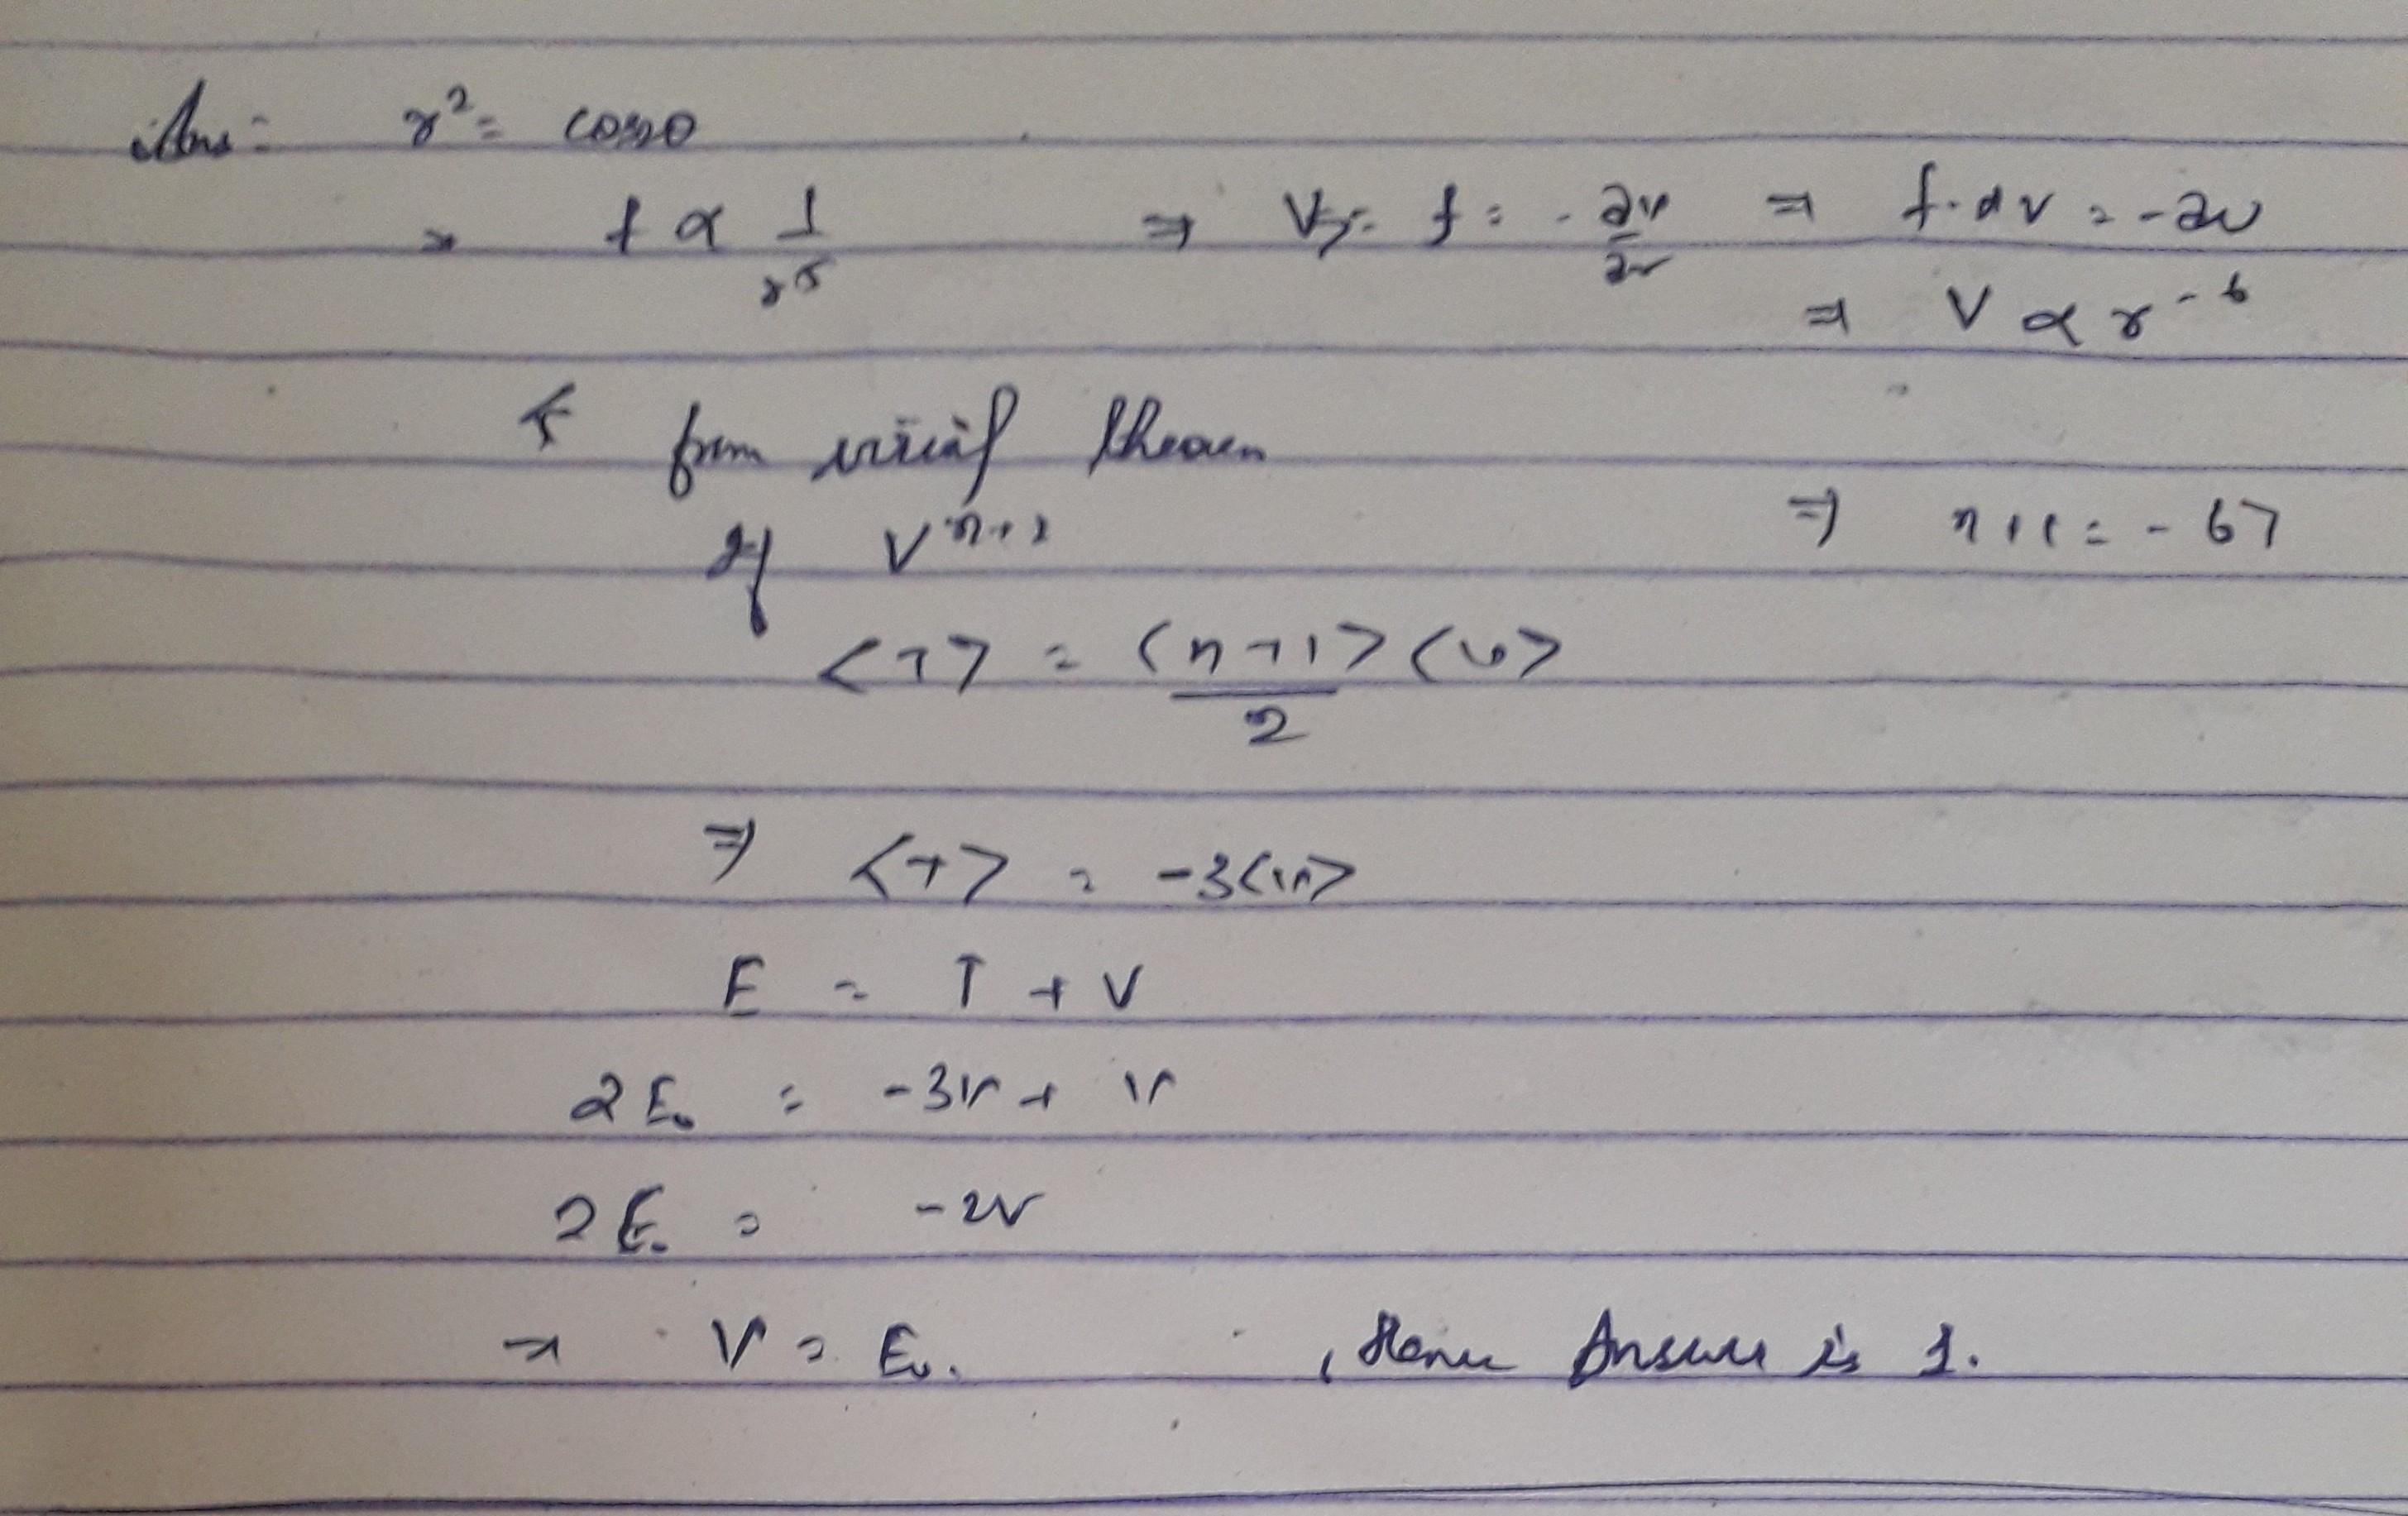 Ans:- r² = cos2θ
⇒ f α 1/r⁵ ⇒ V⇒:- f = -∂v/∂r ⇒ f.dr = -∂v
⇒ V α r⁻⁶
from virial theorem
If Vⁿ⁺¹ ⇒ n+1 = -6
<T> = <n+1> <v> / 2
⇒ <T> = -3<v>
E = T + V
2E₀ = -3v + v
2E₀ = -2v
⇒ V = E₀. , Hence Answer is 1.